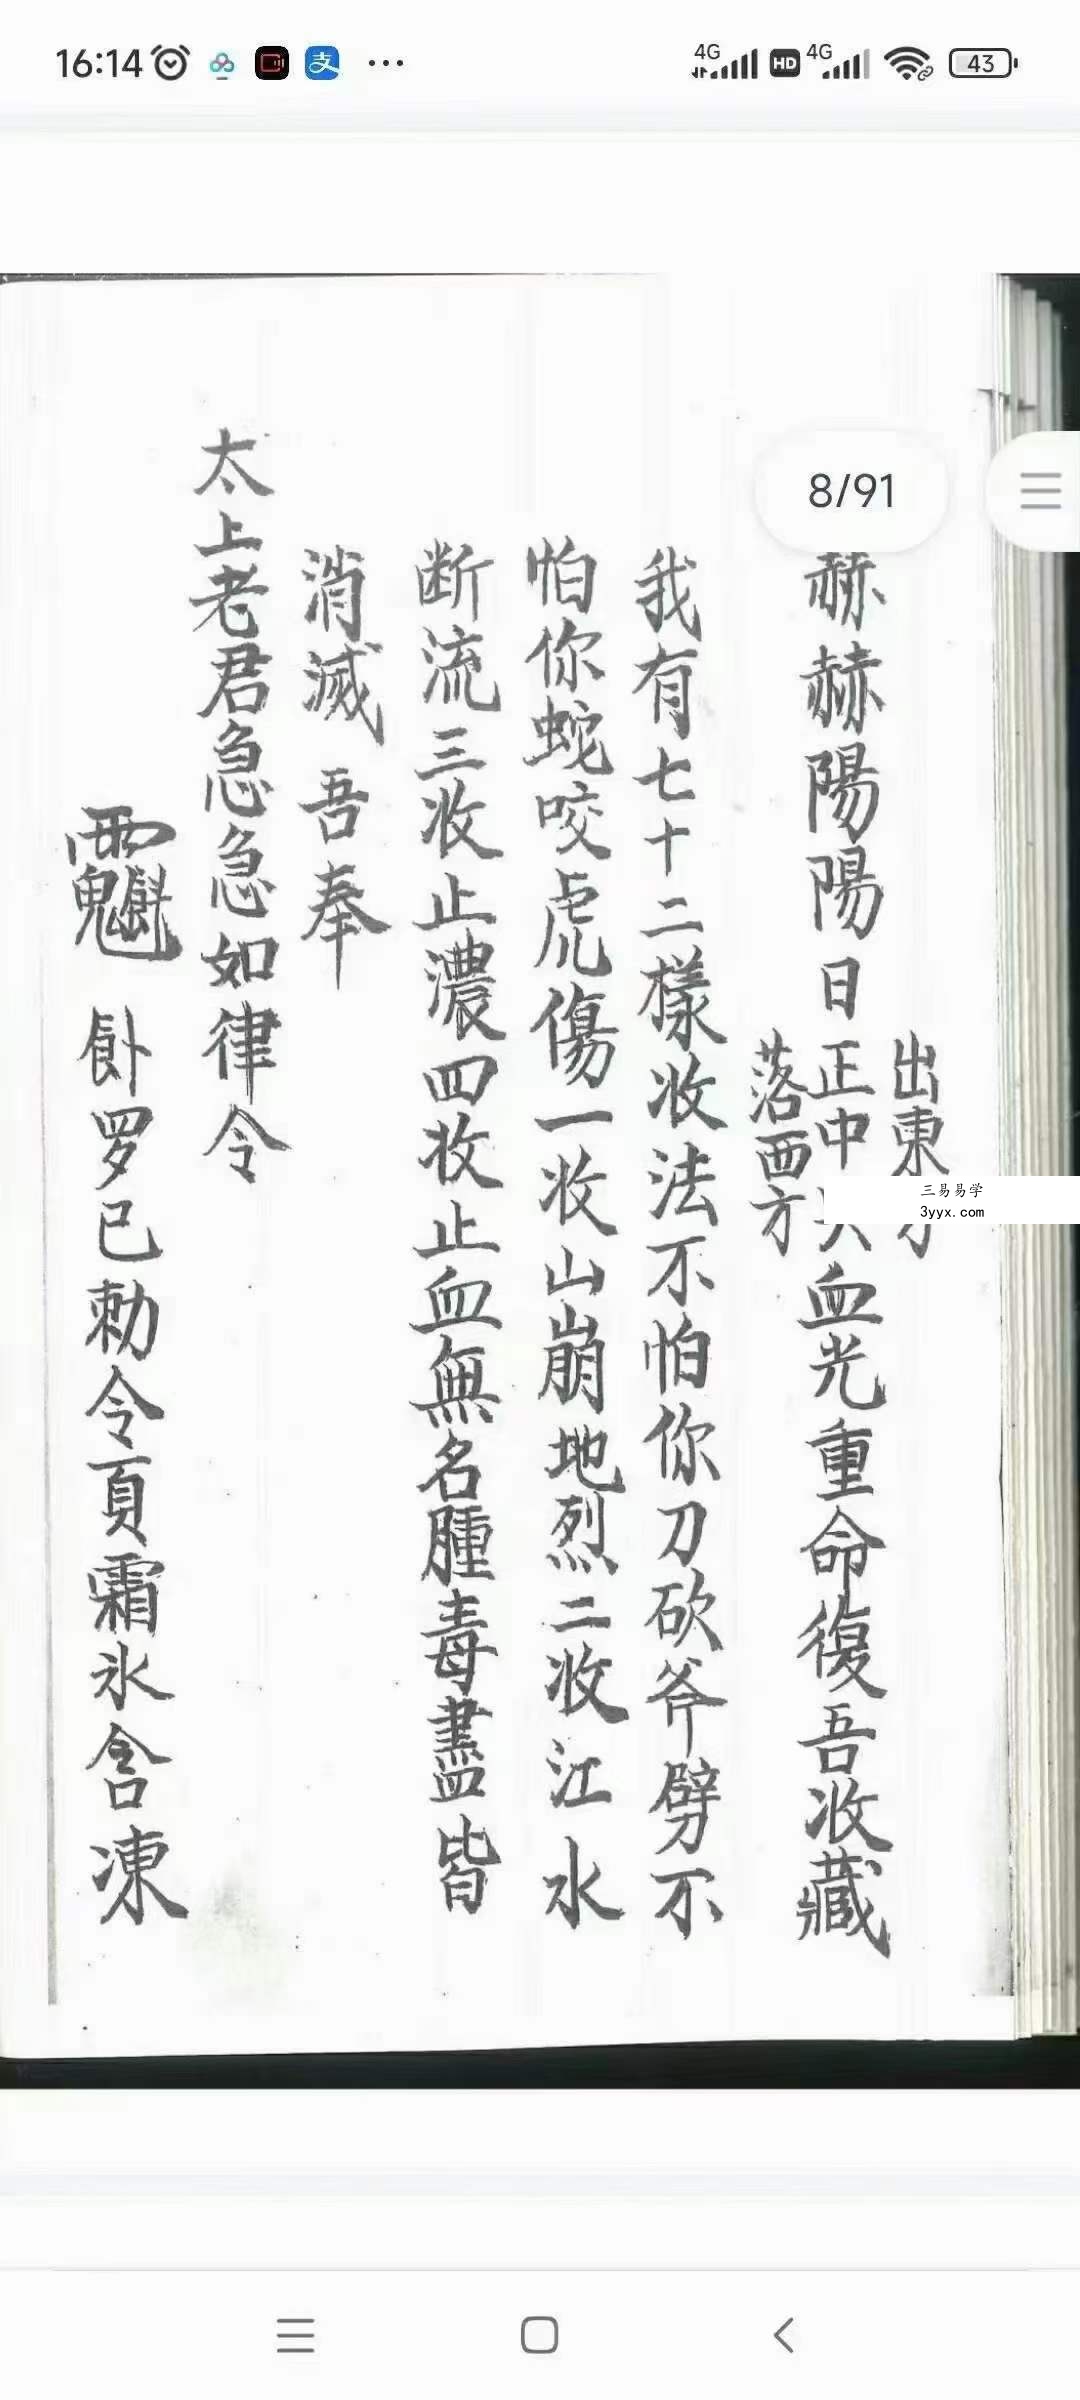 16:14
4G HD 4G 43
8/91
赫赫陽陽日
出東
正中
落西方
血光重命復吾收藏
我有七十二樣收法不怕你刀砍斧劈不
怕你蛇咬虎傷一收山崩地烈二收江水
断流三收止濃四收止血無名腫毒盡皆
消滅 吾奉
太上老君急急如律令
罗已勅令頁霜氷含凍
三易易学
3yyx.com